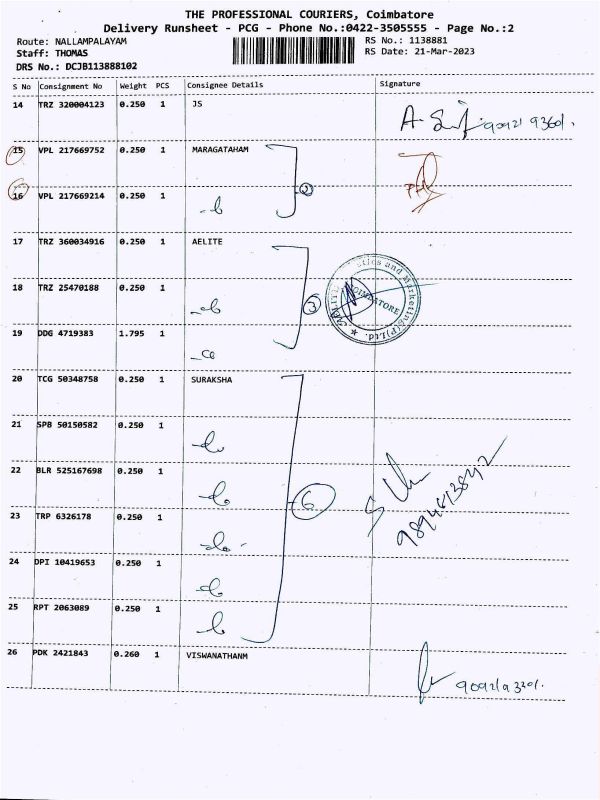 THE PROFESSIONAL COURIERS, Coimbatore
Delivery Runsheet - PCG - Phone No.:0422-3505555 - Page No.:2
Route: NALLAMPALAYAM
RS No.: 1138881
Staff: THOMAS
RS Date: 21-Mar-2023
DRS No.: DCJB113888102
S No Consignment No Weight PCS Consignee Details Signature
14 TRZ 320004123 0.250 1 JS
15 VPL 217669752 0.250 1 MARAGATAHAM
16 VPL 217669214 0.250 1
2
17 TRZ 360034916 0.250 1 AELITE
18 TRZ 25470188 0.250 1
3
COIMBATORE
19 DDG 4719383 1.795 1
20 TCG 50348758 0.250 1 SURAKSHA
21 SPB 50150582 0.250 1
22 BLR 525167698 0.250 1
6
9894613842
23 TRP 6326178 0.250 1
24 DPI 10419653 0.250 1
25 RPT 2063089 0.250 1
26 PDK 2421843 0.260 1 VISWANATHANM